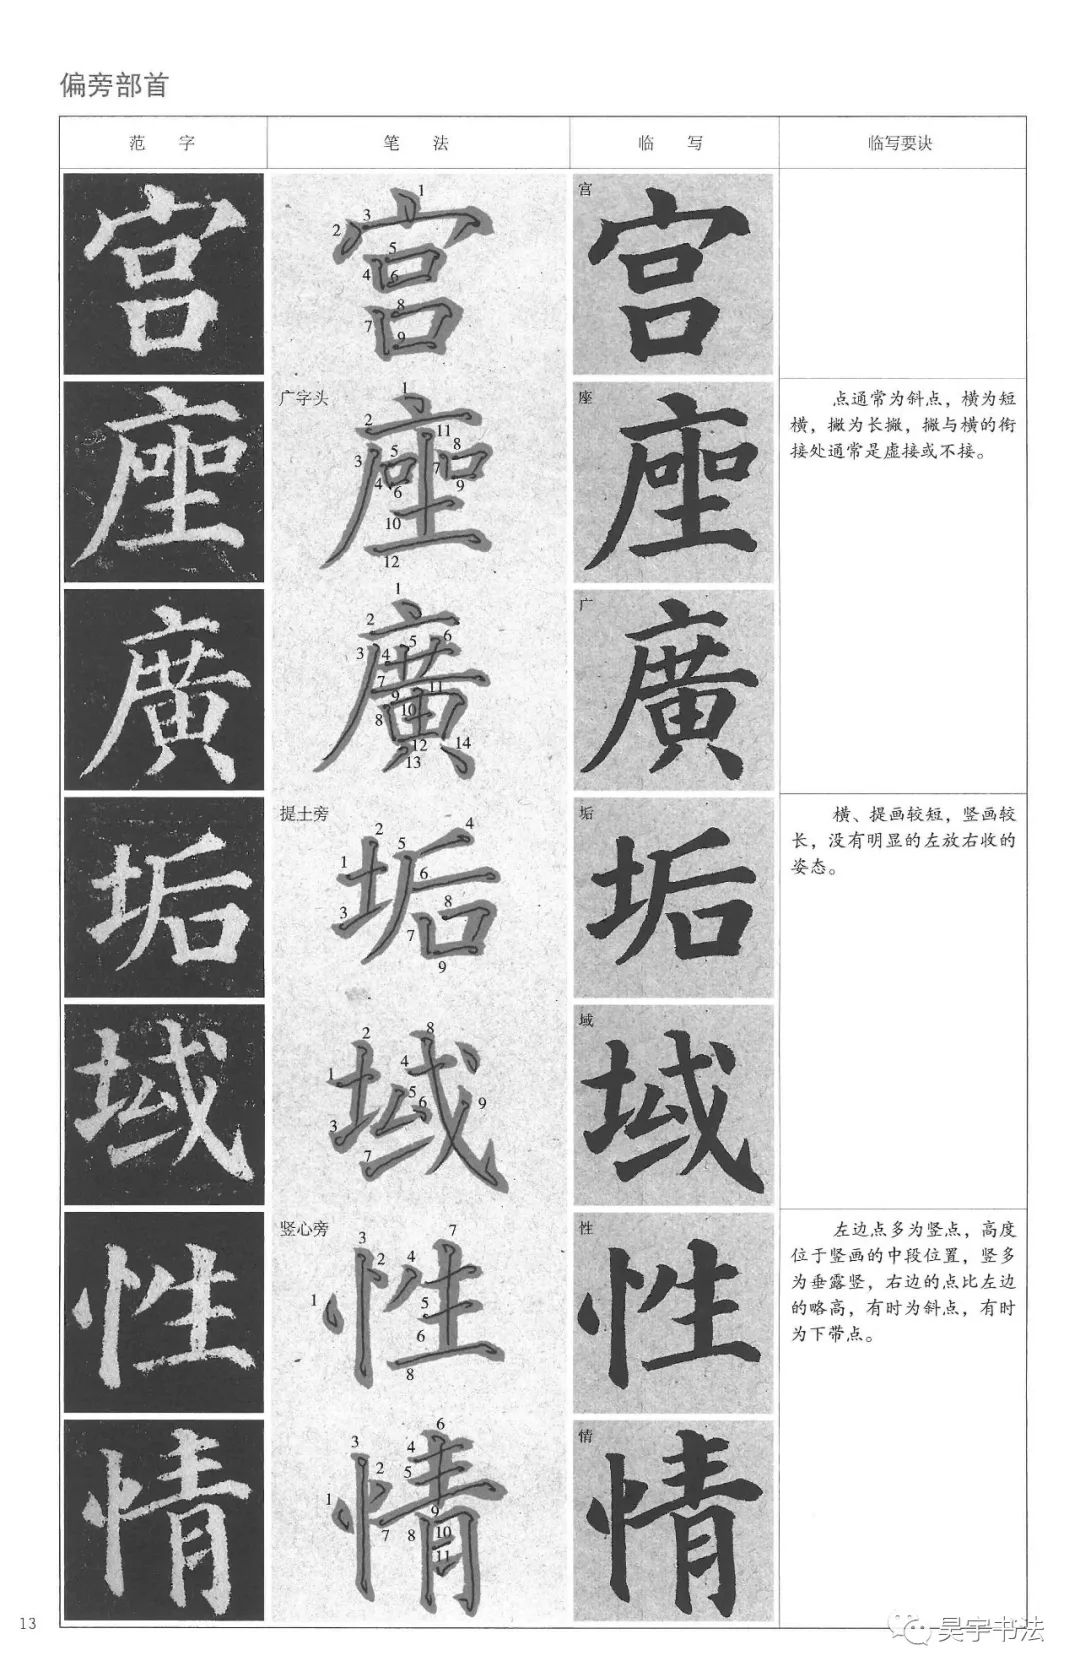 偏旁部首
范 字
笔 法
临 写
临写要诀
宫
宫
宫
宫
1
2
3
4
5
6
7
8
9
座
广字头
座
座
座
1
2
3
4
5
6
7
8
9
10
11
12
点通常为斜点，横为短
横，撇为长撇，撇与横的衔
接处通常是虚接或不接。
廣
廣
广
廣
1
2
3
4
5
6
7
8
9
10
11
12
13
14
垢
提土旁
垢
垢
垢
1
2
3
4
5
6
7
8
9
横、提画较短，竖画较
长，没有明显的左放右收的
姿态。
域
域
域
域
1
2
3
4
5
6
7
8
9
性
竖心旁
性
性
性
1
2
3
4
5
6
7
8
左边点多为竖点，高度
位于竖画的中段位置，竖多
为垂露竖，右边的点比左边
的略高，有时为斜点，有时
为下带点。
情
情
情
情
1
2
3
4
5
6
7
8
9
10
11
13
昊宇书法